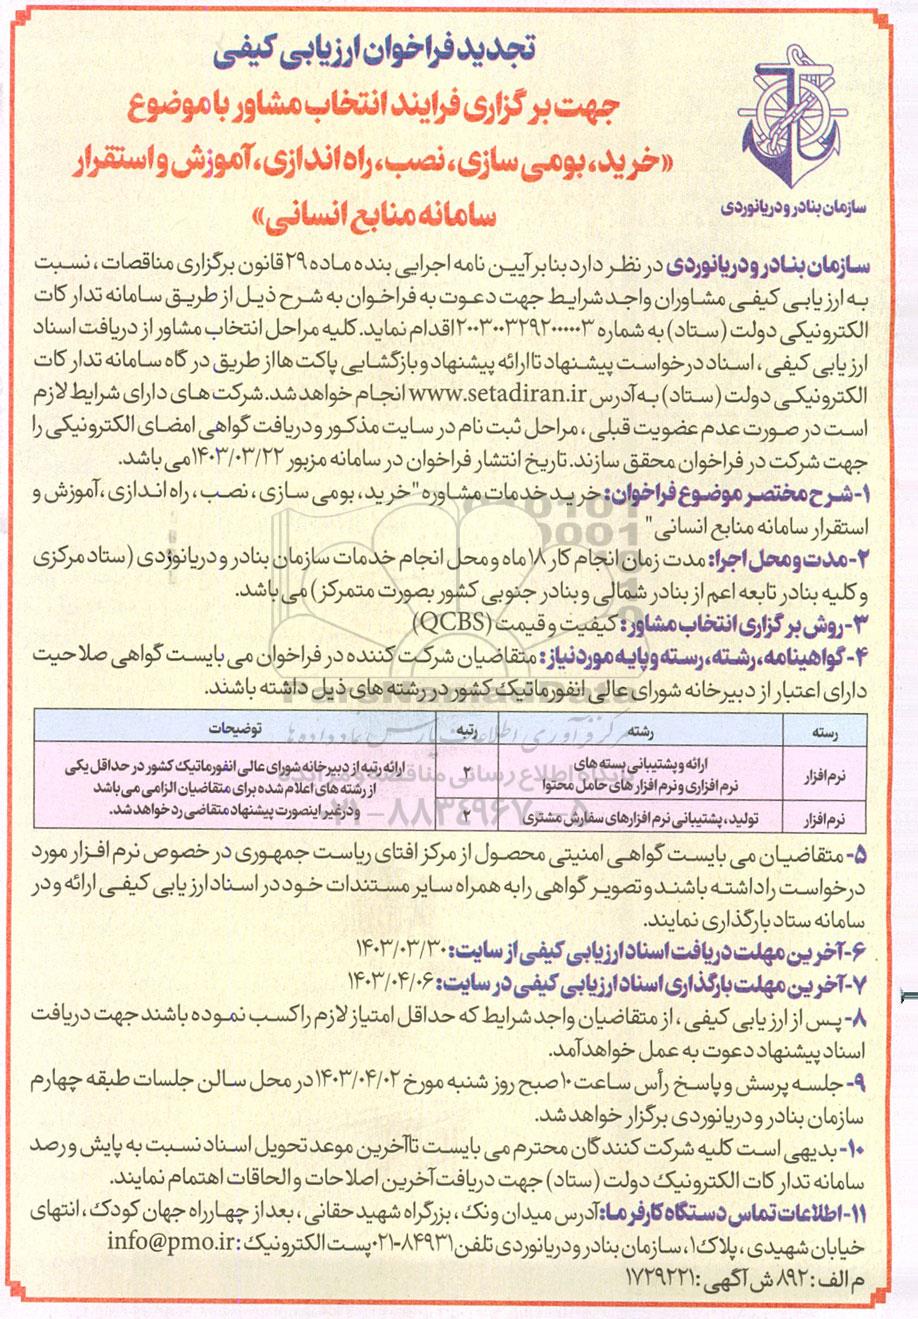 تجدید فراخوان ارزیابی کیفی
جهت برگزاری فرایند انتخاب مشاور با موضوع
«خرید، بومی سازی، نصب، راه اندازی، آموزش و استقرار
سامانه منابع انسانی»
سازمان بنادر و دریانوردی
سازمان بنادر و دریانوردی در نظر دارد بنابر آیین نامه اجرایی بند ه ماده ۲۹ قانون برگزاری مناقصات، نسبت
به ارزیابی کیفی مشاوران واجد شرایط جهت دعوت به فراخوان به شرح ذیل از طریق سامانه تدارکات
الکترونیکی دولت (ستاد) به شماره ۲۰۰۳۰۰۳۲۹۲۰۰۰۰۰۳ اقدام نماید. کلیه مراحل انتخاب مشاور از دریافت اسناد
ارزیابی کیفی، اسناد درخواست پیشنهاد تا ارائه پیشنهاد و بازگشایی پاکت ها از طریق درگاه سامانه تدارکات
الکترونیکی دولت (ستاد) به آدرس www.setadiran.ir انجام خواهد شد. شرکت های دارای شرایط لازم
است در صورت عدم عضویت قبلی، مراحل ثبت نام در سایت مذکور و دریافت گواهی امضای الکترونیکی را
جهت شرکت در فراخوان محقق سازند. تاریخ انتشار فراخوان در سامانه مزبور ۱۴۰۳/۰۳/۲۲ می باشد.
۱- شرح مختصر موضوع فراخوان: خرید خدمات مشاوره "خرید، بومی سازی، نصب، راه اندازی، آموزش و
استقرار سامانه منابع انسانی"
۲- مدت و محل اجرا: مدت زمان انجام کار ۱۸ ماه و محل انجام خدمات سازمان بنادر و دریانوردی (ستاد مرکزی
و کلیه بنادر تابعه اعم از بنادر شمالی و بنادر جنوبی کشور بصورت متمرکز) می باشد.
۳- روش برگزاری انتخاب مشاور: کیفیت و قیمت (QCBS)
۴- گواهینامه، رشته، رسته و پایه مورد نیاز: متقاضیان شرکت کننده در فراخوان می بایست گواهی صلاحیت
دارای اعتبار از دبیرخانه شورای عالی انفورماتیک کشور در رشته های ذیل داشته باشند.
رسته رشته رتبه توضیحات
نرم افزار ارائه و پشتیبانی بسته های نرم افزاری و نرم افزار های حامل محتوا ۲
نرم افزار تولید، پشتیبانی نرم افزارهای سفارش مشتری ۲
ارائه رتبه از دبیرخانه شورای عالی انفورماتیک کشور در حداقل یکی
از رشته های اعلام شده برای متقاضیان الزامی می باشد
و در غیر اینصورت پیشنهاد متقاضی رد خواهد شد.
۵- متقاضیان می بایست گواهی امنیتی محصول از مرکز افتای ریاست جمهوری در خصوص نرم افزار مورد
درخواست را داشته باشند و تصویر گواهی را به همراه سایر مستندات خود در اسناد ارزیابی کیفی ارائه و در
سامانه ستاد بارگذاری نمایند.
۶- آخرین مهلت دریافت اسناد ارزیابی کیفی از سایت: ۱۴۰۳/۰۳/۳۰
۷- آخرین مهلت بارگذاری اسناد ارزیابی کیفی در سایت: ۱۴۰۳/۰۴/۰۶
۸- پس از ارزیابی کیفی، از متقاضیان واجد شرایط که حداقل امتیاز لازم را کسب نموده باشند جهت دریافت
اسناد پیشنهاد دعوت به عمل خواهد آمد.
۹- جلسه پرسش و پاسخ رأس ساعت ۱۰ صبح روز شنبه مورخ ۱۴۰۳/۰۴/۰۲ در محل سالن جلسات طبقه چهارم
سازمان بنادر و دریانوردی برگزار خواهد شد.
۱۰- بدیهی است کلیه شرکت کنندگان محترم می بایست تا آخرین موعد تحویل اسناد نسبت به پایش و رصد
سامانه تدارکات الکترونیک دولت (ستاد) جهت دریافت آخرین اصلاحات و الحاقات اهتمام نمایند.
۱۱- اطلاعات تماس دستگاه کارفرما: آدرس میدان ونک، بزرگراه شهید حقانی، بعد از چهارراه جهان کودک، انتهای
خیابان شهیدی، پلاک ۱، سازمان بنادر و دریانوردی تلفن ۸۴۹۳۱-۰۲۱ پست الکترونیک: info@pmo.ir
م الف: ۸۹۲ ش آگهی: ۱۷۲۹۲۲۱
ParsNamadData
پایگاه اطلاع رسانی مناقصه و مزایده
۰۲۱-۸۸۳۴۹۶۷۰-۵